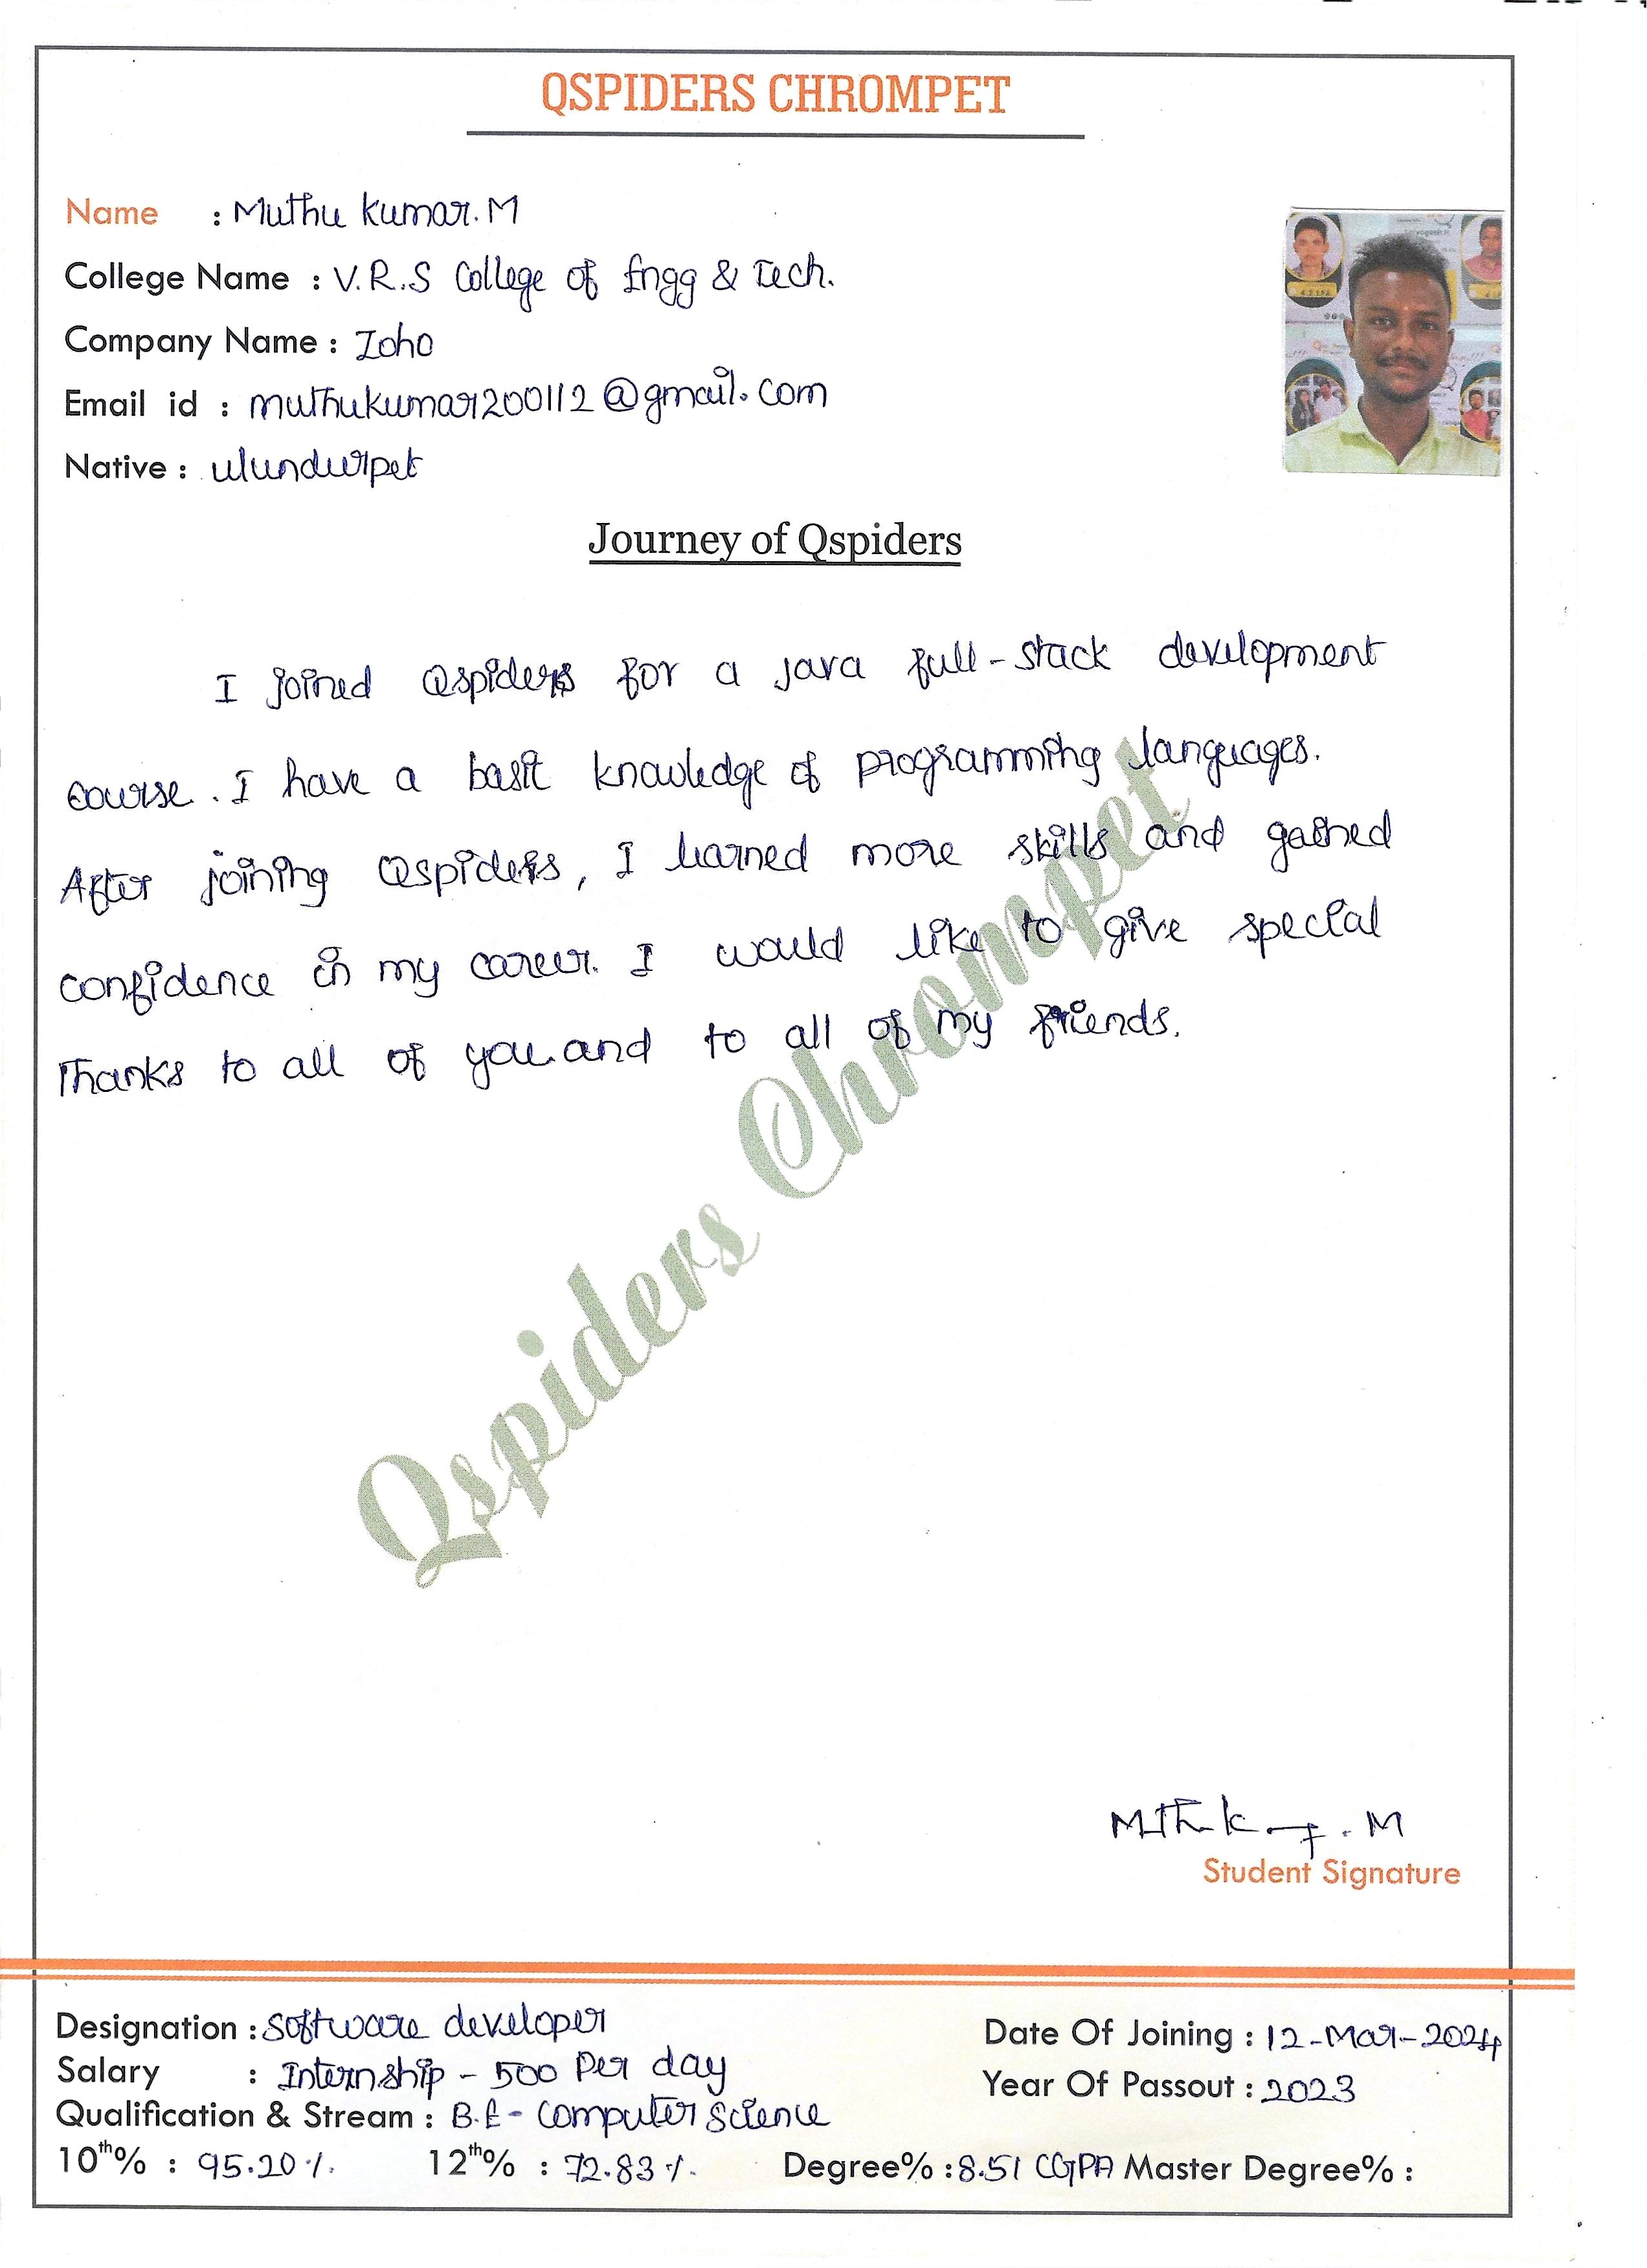 QSPIDERS CHROMPET
Name : Muthu kumar. M
College Name : V.R.S College of Engg & Tech.
Company Name : Zoho
Email id : muthukumar200112@gmail.com
Native : ulundurpet
Journey of Qspiders
I joined Qspiders for a java full-stack development
course. I have a basic knowledge of programming languages.
After joining Qspiders, I learned more skills and gained
confidence in my career. I would like to give special
Thanks to all of you and to all of my friends.
Qspiders Chrompet
Student Signature
Designation : software developer
Date Of Joining : 12-Mar-2024
Salary : Internship - 500 Per day
Year Of Passout : 2023
Qualification & Stream : B.E - Computer Science
10th% : 95.20 % 12th% : 72.83 % Degree% : 8.51 CGPA Master Degree% :